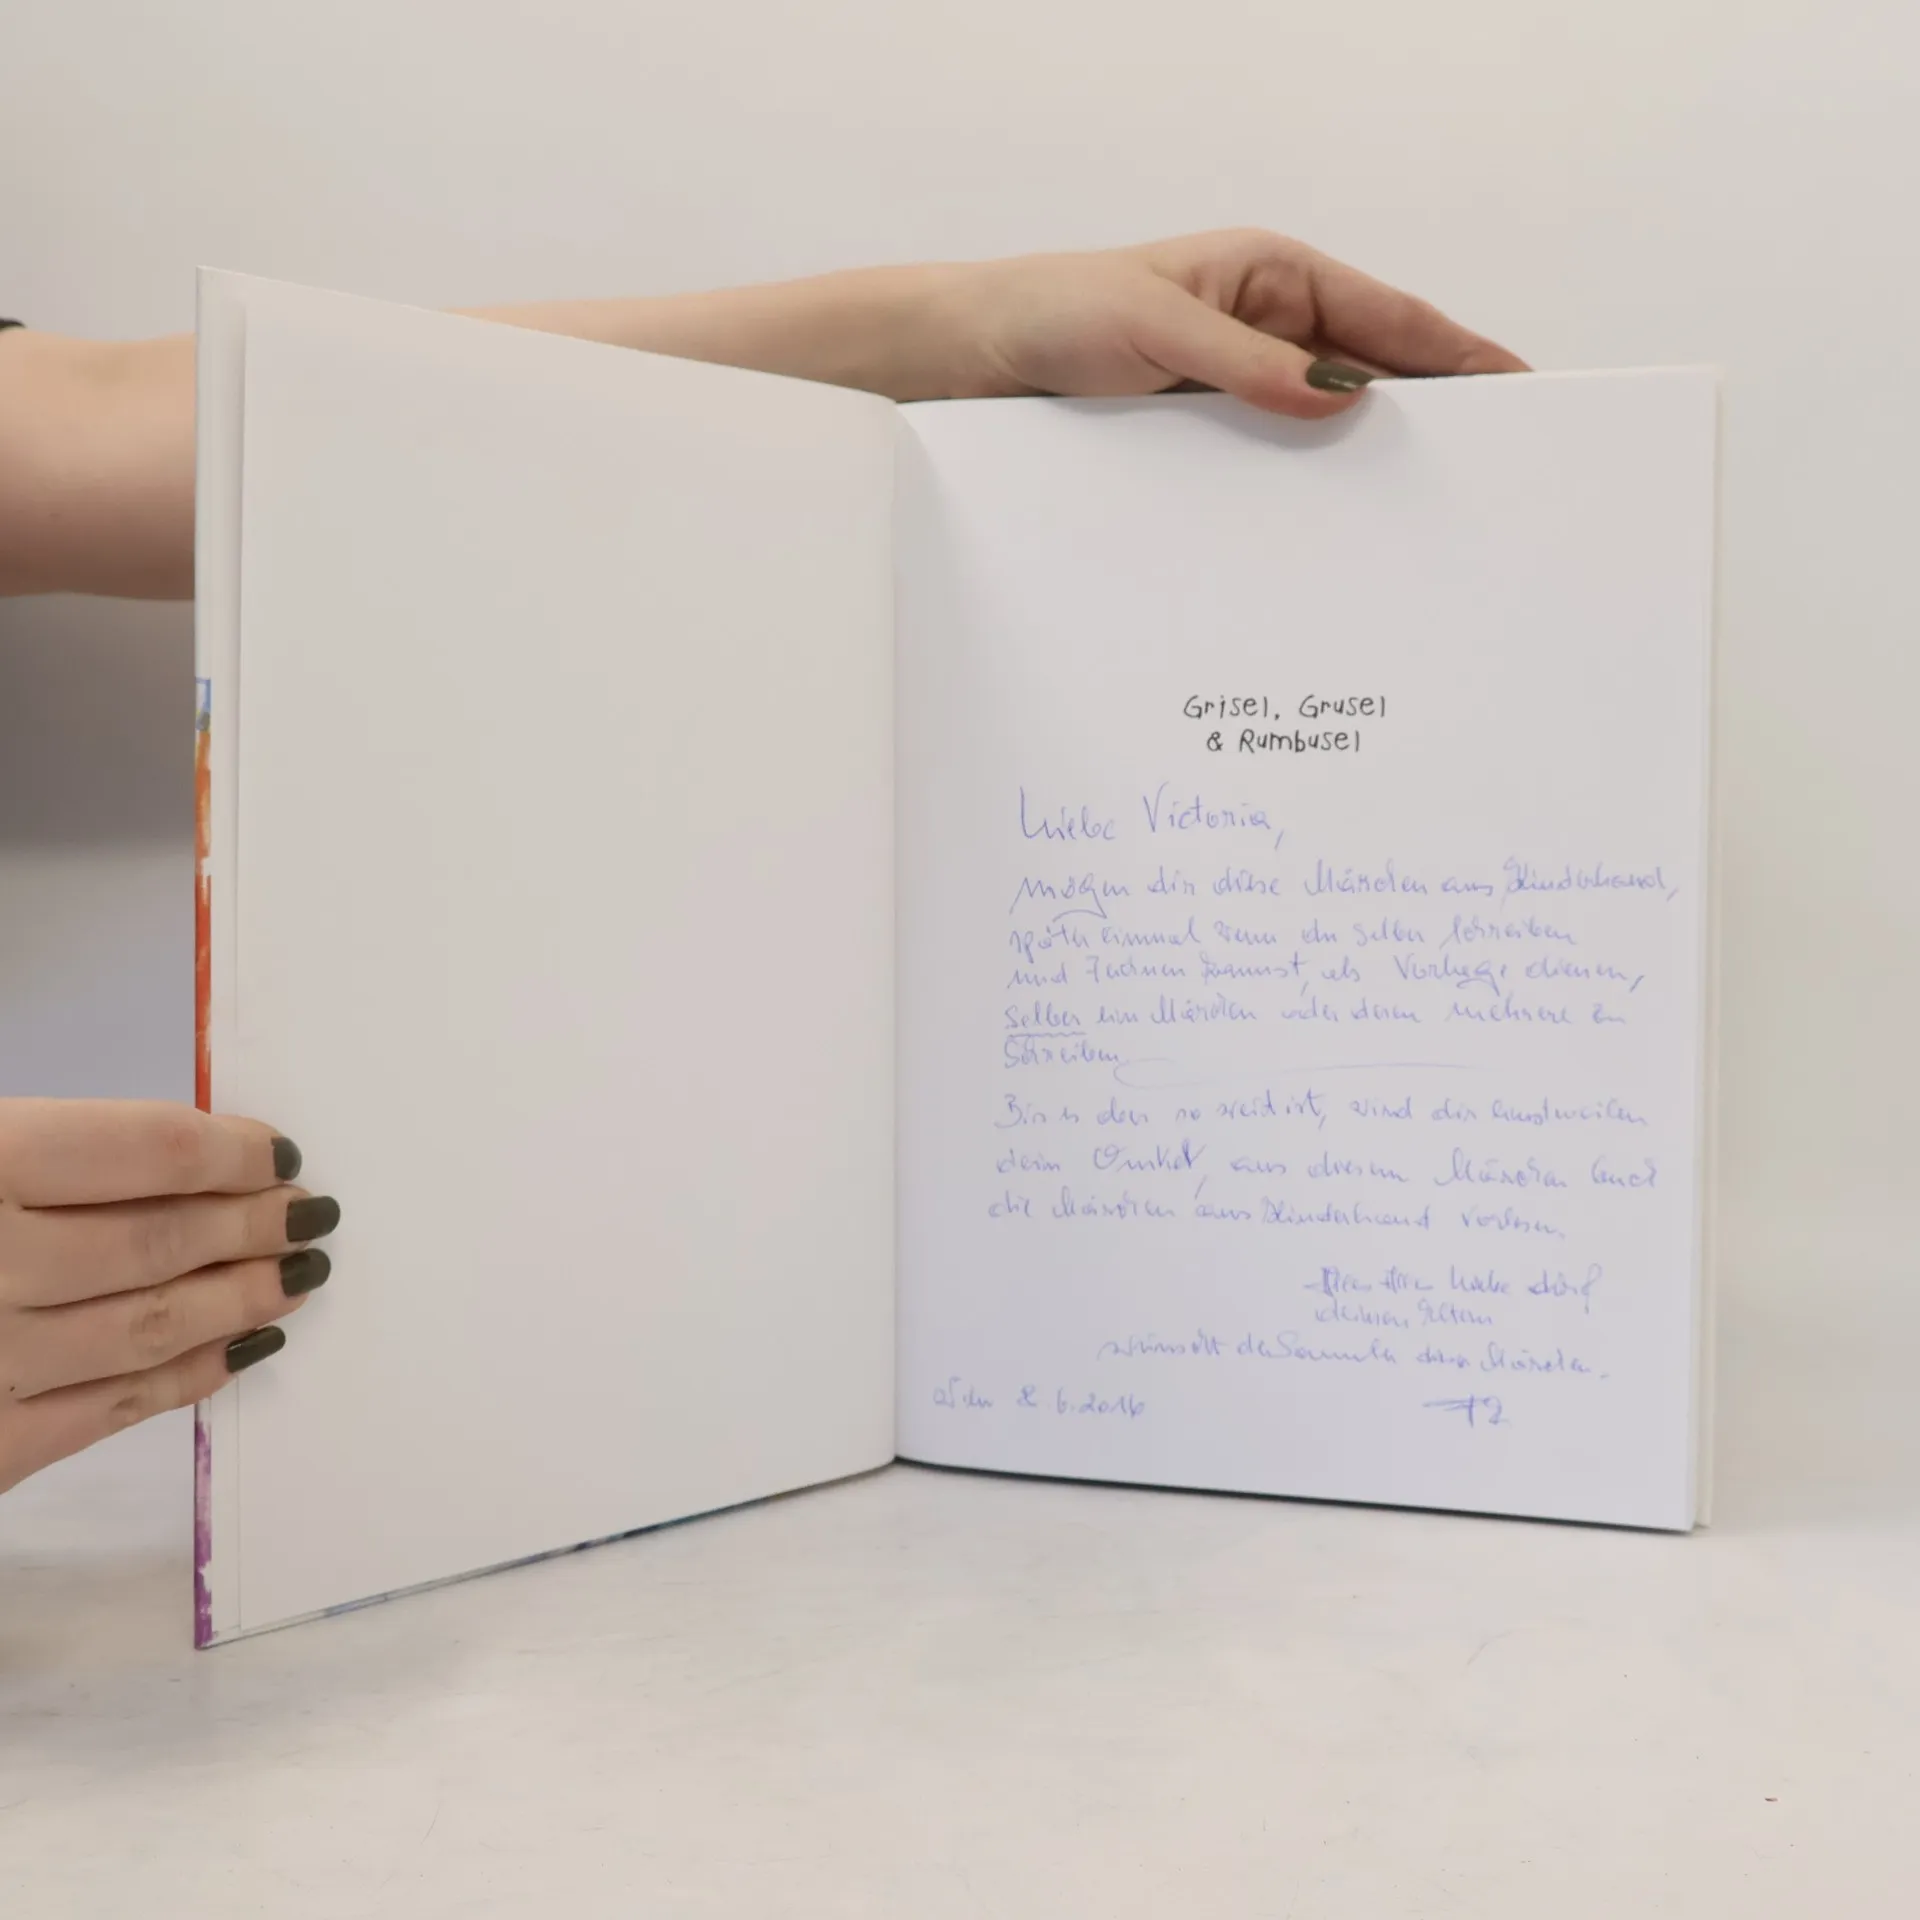 Grisel, Grusel
& Rumbusel
Liebe Victoria,
mögen dir diese Märchen aus Kinderhand,
später einmal wenn du selber schreiben
und zeichnen kannst, als Vorlage dienen,
selber ein Märchen oder deren mehrere zu
schreiben
Bis es den so weit ist, wird dir einstweilen
dein Onkel, aus diesem Märchen buch
die Märchen aus Kinderhand vorlesen.
Liebe
deinen Eltern
wünscht der Sammler dieser Märchen.
Wien 8 6.2016